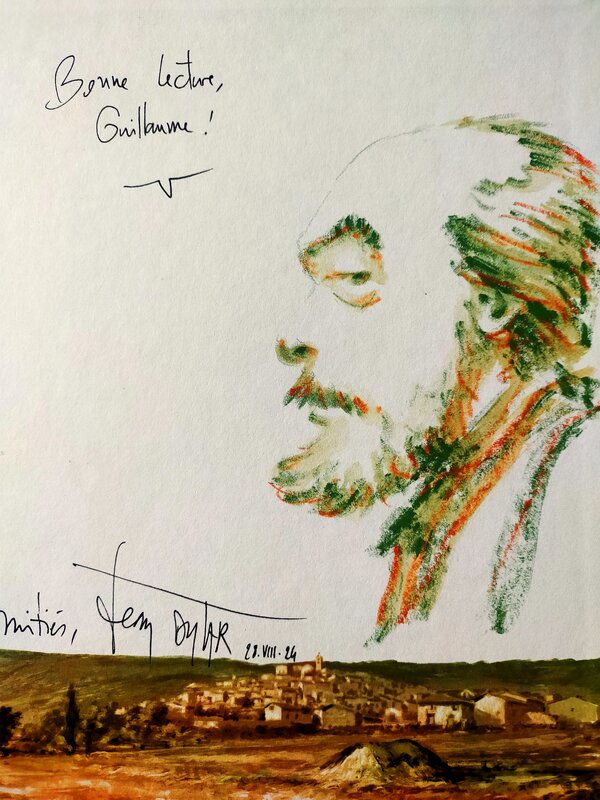 Bonne lecture,
Guillaume !
mitiés, Jean DYTAR 28.VIII.24